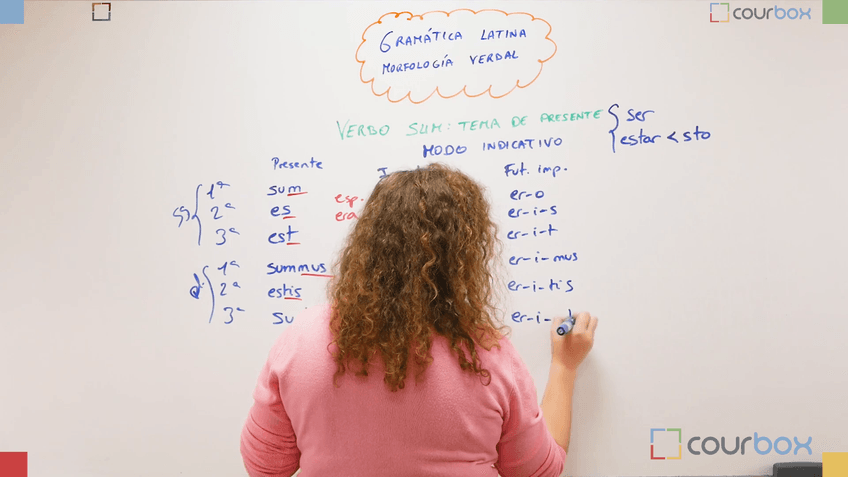 courbox
GRAMÁTICA LATINA
MORFOLOGÍA VERDAL
VERBO SUM: TEMA DE PRESENTE { ser
estar < sto
MODO INDICATIVO
Presente Fut. imp.
sg 1ª sum esp. er-o
2ª es era er-i-s
3ª est er-i-t
1ª summus er-i-mus
2ª estis er-i-tis
3ª su er-i-
courbox